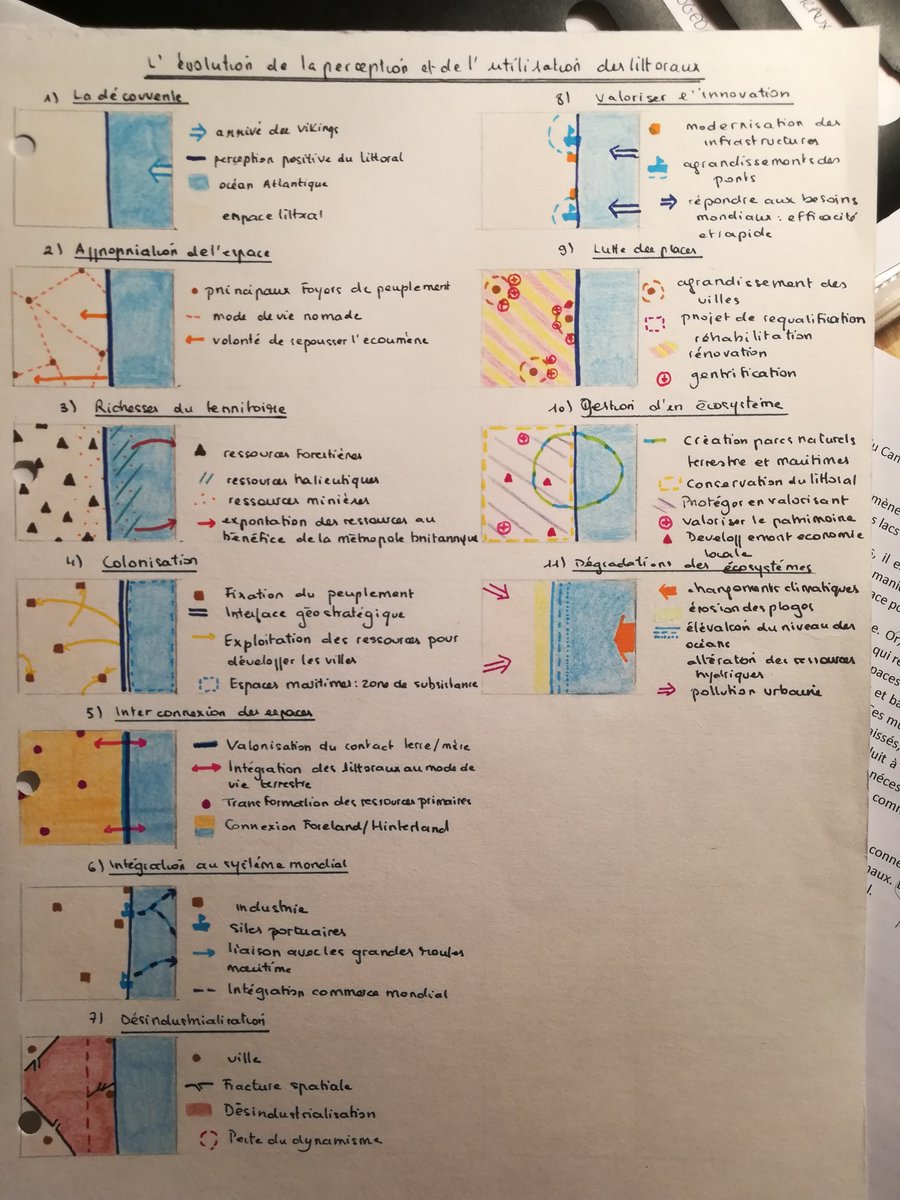 L'évolution de la perception et de l'utilisation des littoraux
1) La découverte
arrivé des vikings
perception positive du littoral
océan Atlantique
espace littral
2) Appropriation de l'espace
principaux foyers de peuplement
mode de vie nomade
volonté de repousser l'ecoumène
3) Richesses du territoire
ressources forestières
ressources halieutiques
ressources minières
exportation des ressources au
bénéfice de la métropole britannique
4) Colonisation
Fixation du peuplement
Interface géostratégique
Exploitation des ressources pour
développer les villes
Espaces maritimes : zone de subsistance
5) Interconnexion des espaces
Valorisation du contact terre/mère
Intégration des littoraux au mode de
vie terrestre
Transformation des ressources primaires
Connexion Foreland/Hinterland
6) Intégration au système mondial
industrie
Sites portuaires
liaison avec les grandes routes
maritime
Intégration commerce mondial
7) Désindustrialisation
ville
Fracture spatiale
Désindustrialisation
Perte du dynamisme
8) Valoriser l'innovation
modernisation des
infrastructures
agrandissements des
ports
répondre aux besoins
mondiaux : efficacité
et rapide
9) Lutte des places
agrandissement des
villes
projet de requalification
réhabilitation
rénovation
gentrification
10) Gestion d'en écosystème
Création parcs naturels
terrestre et maritimes
Conservation du littoral
Protéger en valorisant
Valoriser le patrimoine
Développement économie
locale
11) Dégradations des écosystèmes
changements climatiques
érosion des plages
élévation du niveau des
océans
altération des ressources
hydriques
pollution urbaine